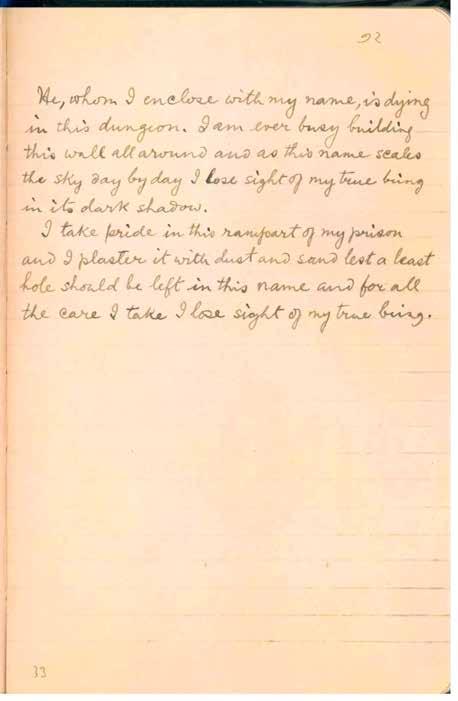 92
He, whom I enclose with my name, is dying
in this dungeon. I am ever busy building
this wall all around and as this name scales
the sky day by day I lose sight of my true being
in its dark shadow.
I take pride in this rampart of my prison
and I plaster it with dust and sand lest a least
hole should be left in this name and for all
the care I take I lose sight of my true being.
33